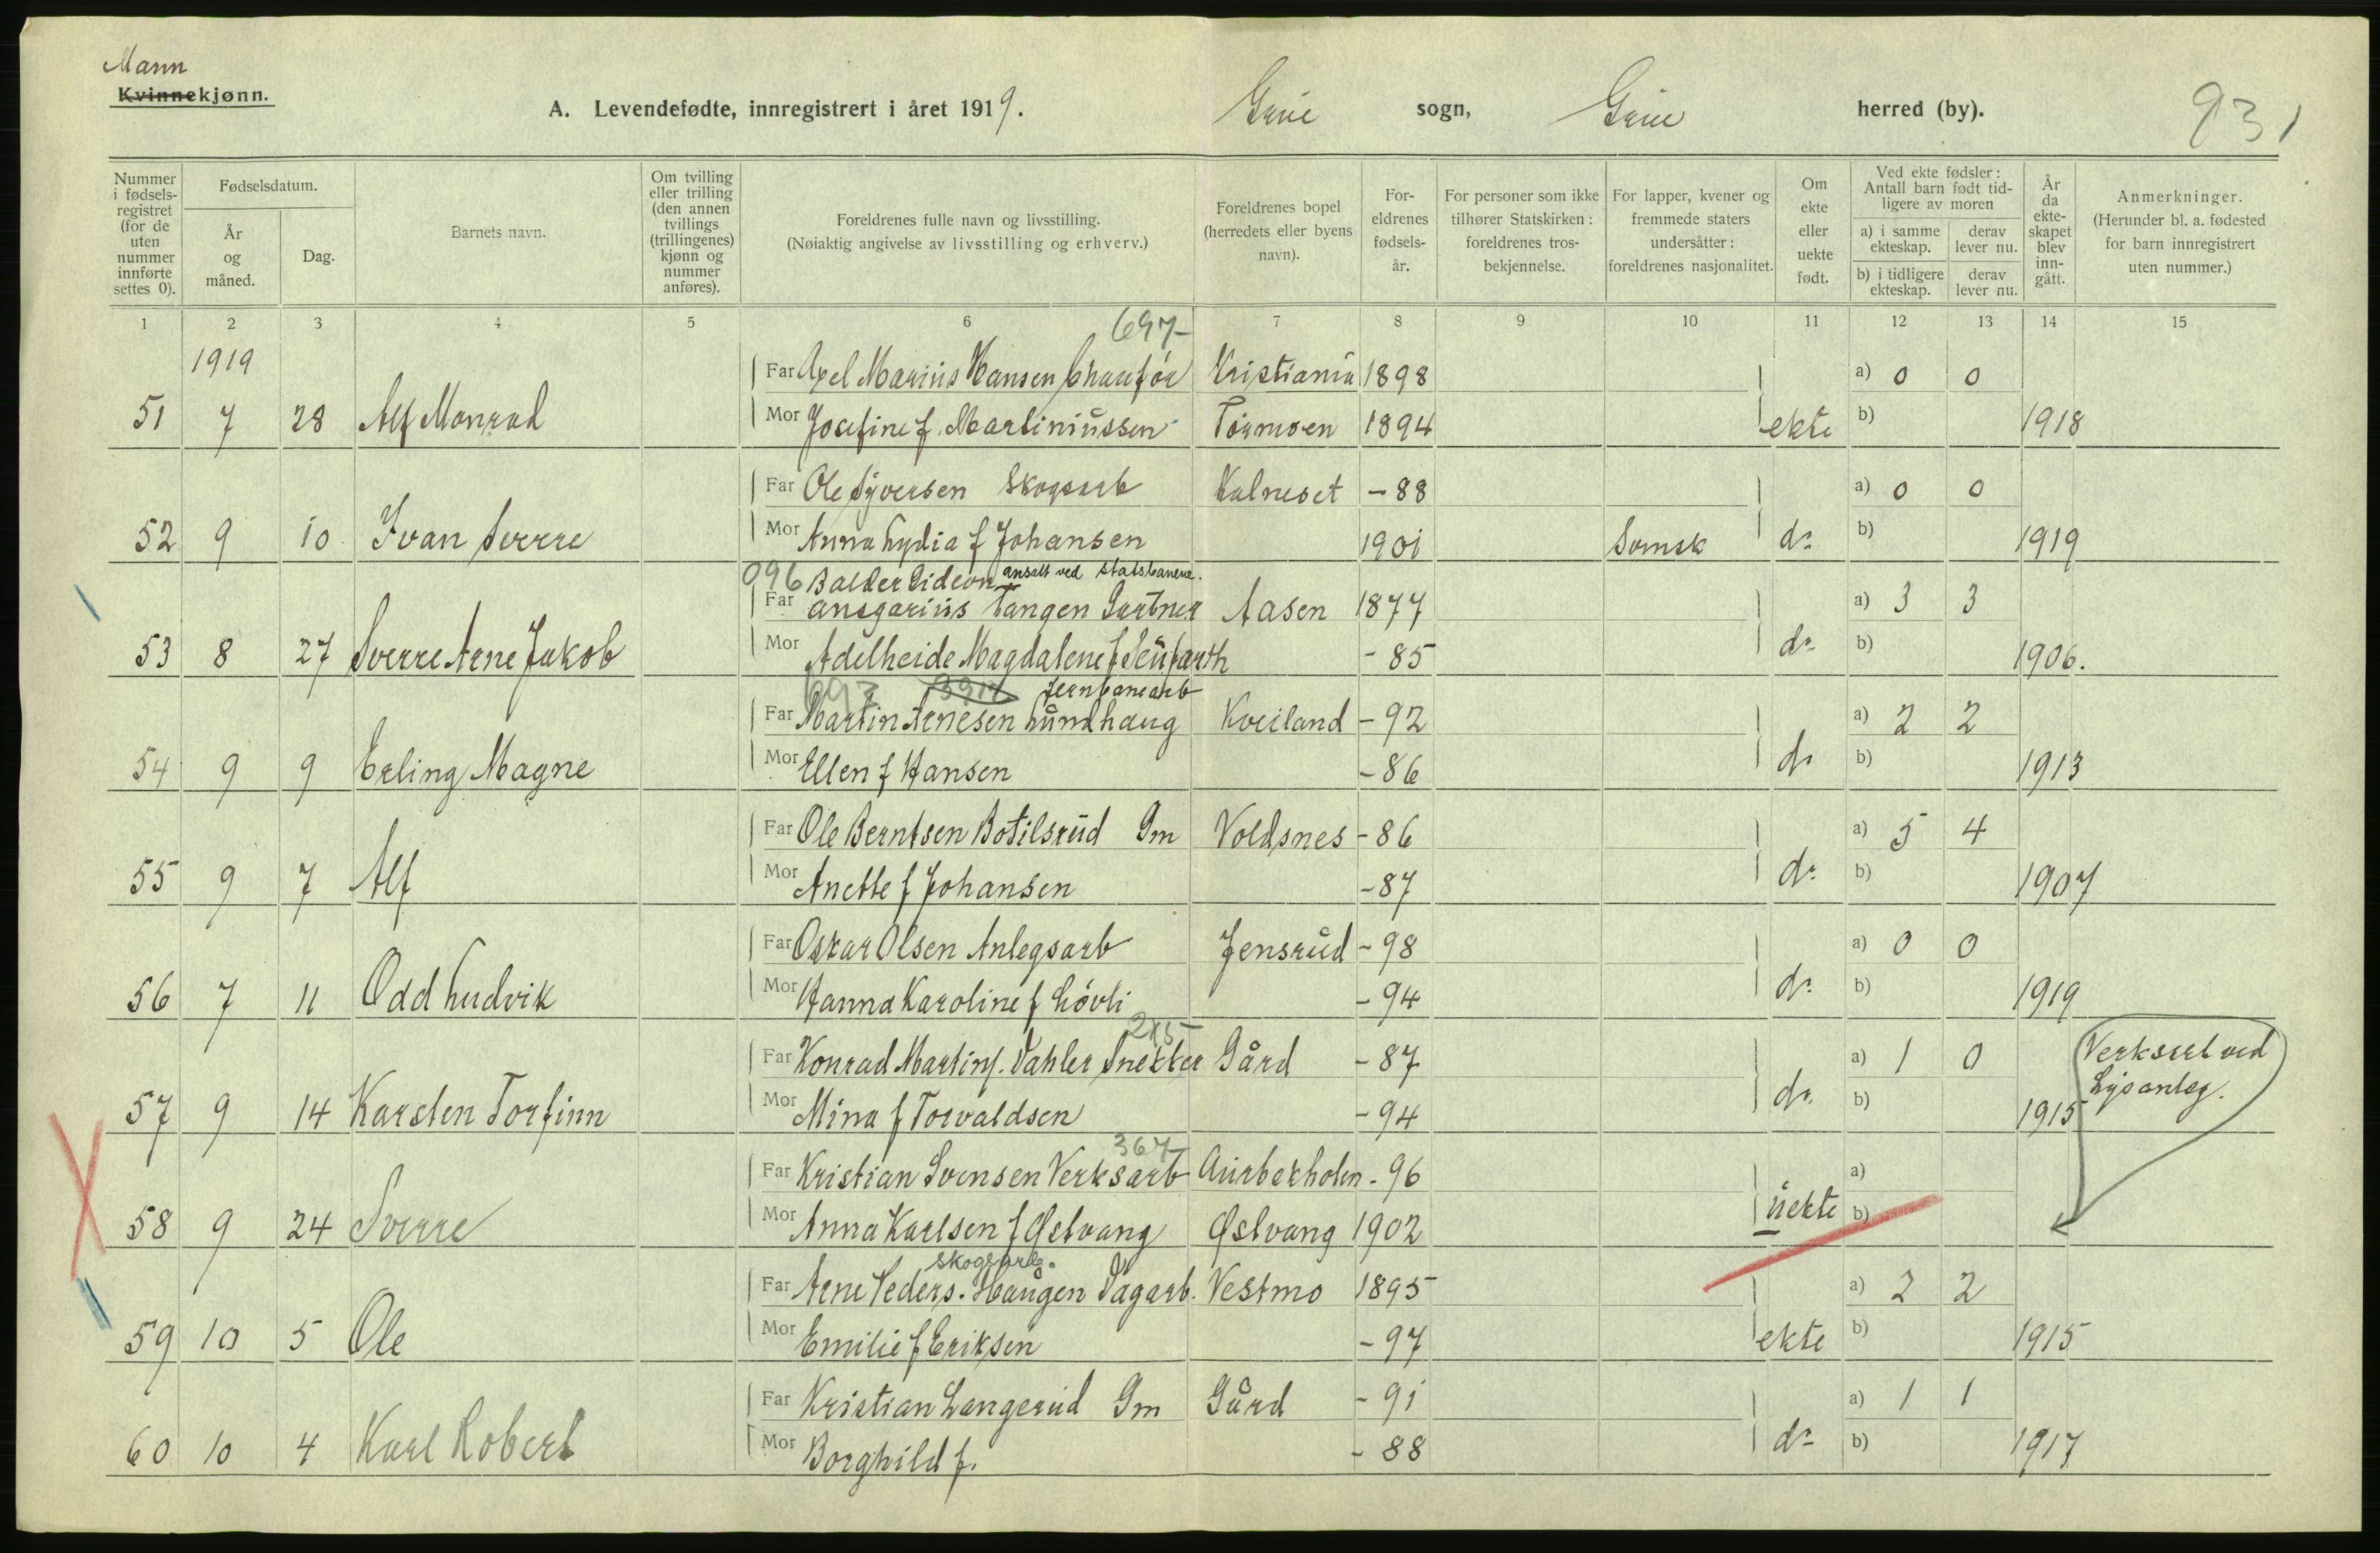 Mann
Kvinnekjønn.
A. Levendefødte, innregistrert i året 1919.
Grue sogn, Grue herred (by).
931
Nummer i fødselsregistret (for de uten nummer innførte settes 0).
Fødselsdatum.
År og måned.
Dag.
Barnets navn.
Om tvilling eller trilling (den annen tvillings (trillingenes) kjønn og nummer anføres).
Foreldrenes fulle navn og livsstilling.
(Nøiaktig angivelse av livsstilling og erhverv.)
Foreldrenes bopel (herredets eller byens navn).
Foreldrenes fødselsår.
For personer som ikke tilhører Statskirken: foreldrenes trosbekjennelse.
For lapper, kvener og fremmede staters undersåtter: foreldrenes nasjonalitet.
Om ekte eller uekte født.
Ved ekte fødsler: Antall barn født tidligere av moren
a) i samme ekteskap.
derav lever nu.
b) i tidligere ekteskap.
derav lever nu.
År da ekteskapet blev inngått.
Anmerkninger.
(Herunder bl. a. fødested for barn innregistrert uten nummer.)
1 2 3 4 5 6 7 8 9 10 11 12 13 14 15
697-
1919
Far Axel Marius Hansen Chaufør Kristiania 1898 a) 0 0
51 7 28 Alf Monrad Mor Josefine f. Martiniussen Tørmoen 1894 ekte b) 1918
Far Ole Syversen Skogsarb Kalneset -88 a) 0 0
52 9 10 Ivan Sverre Mor Anna Lydia f Johansen 1901 Svensk do b) 1919
096 Balder Gideon ansatt ved statsbanene.
Far Ansgarius Tangen Gartner Aasen 1877 a) 3 3
53 8 27 Sverre Arne Jakob Mor Adelheide Magdalene f Seufarth -85 do b) 1906.
697 jernbanearb
Far Martin Arnesen Lundhaug Kveiland -92 a) 2 2
54 9 9 Erling Magne Mor Ellen f Hansen -86 do b) 1913
Far Ole Berntsen Botilsrud Gm Voldsnes -86 a) 5 4
55 9 7 Alf Mor Anette f Johansen -87 do b) 1907
Far Oskar Olsen Anlegsarb Jensrud -98 a) 0 0
56 7 11 Odd Ludvik Mor Hanna Karoline f Løvli -94 do b) 1919
215
Far Konrad Martins. Dahler Snekker Gård -87 a) 1 0 Verksarb ved
57 9 14 Karsten Torfinn Mor Mina f Torvaldsen -94 do b) 1915 Lysanleg.
367-
Far Kristian Svensen Verksarb Aurbekholen -96 a)
58 9 24 Sverre Mor Anna Karlsen f Østvang Østvang 1902 uekte b)
Skogsarb.
Far Arne Peders. Haugen Dagarb. Vestmo 1895 a) 2 2
59 10 5 Ole Mor Emilie f Eriksen -97 ekte b) 1915
Far Kristian Langerud Gm Gård -91 a) 1 1
60 10 4 Karl Robert Mor Borghild f. -88 do b) 1917